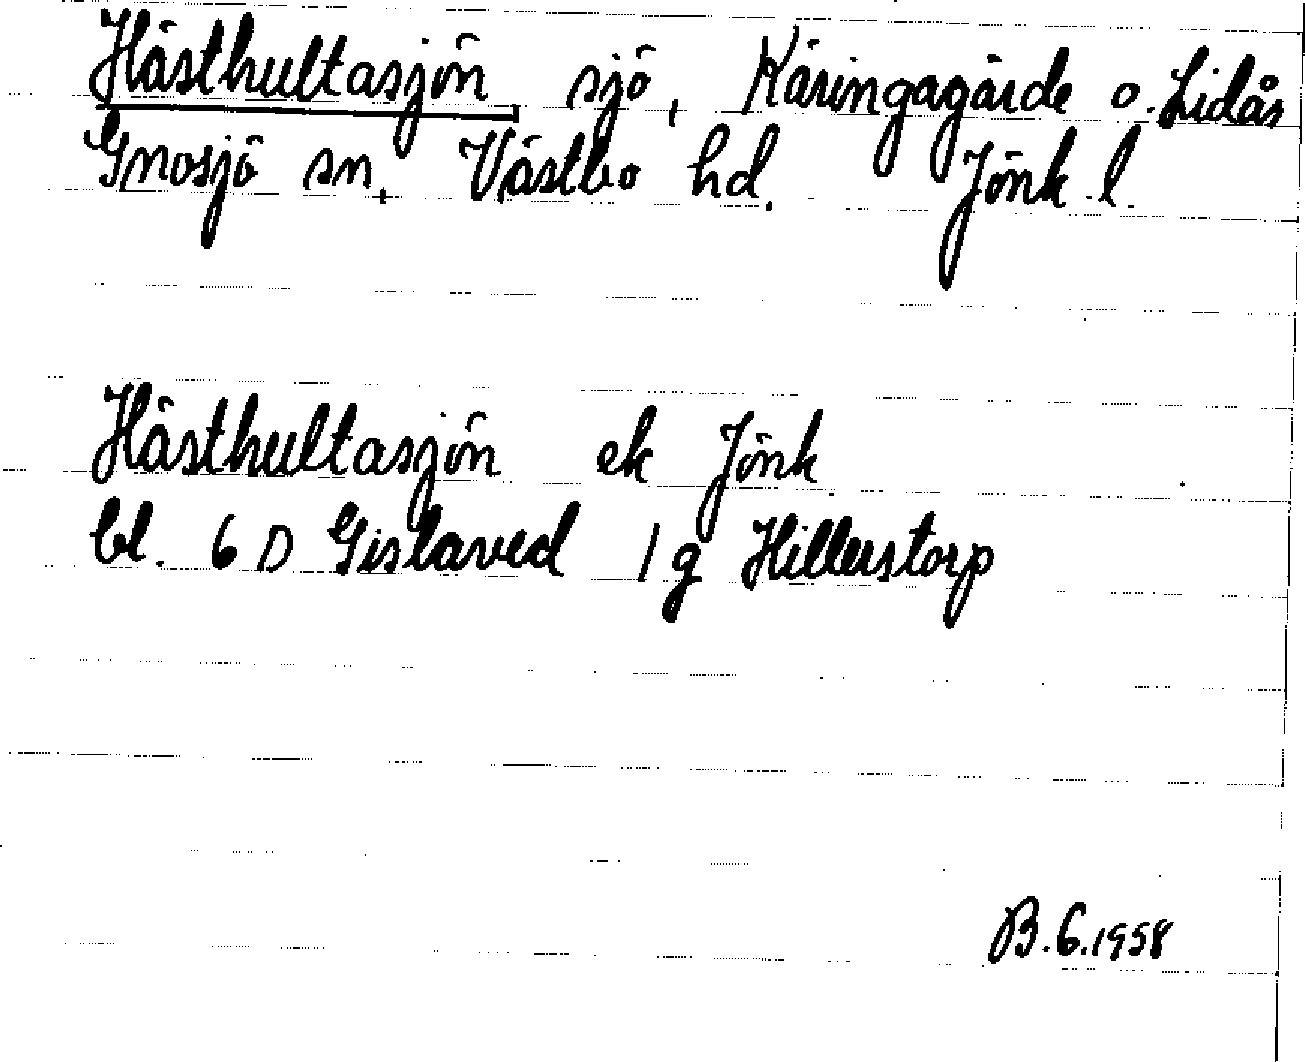 Hästhultasjön, sjö, Käringagärde o. Lidås
Gnosjö sn, Västbo hd. Jönk l.
Hästhultasjön ek Jönk
bl. 6 D Gislaved 1 g Hillerstorp
B.G.1958